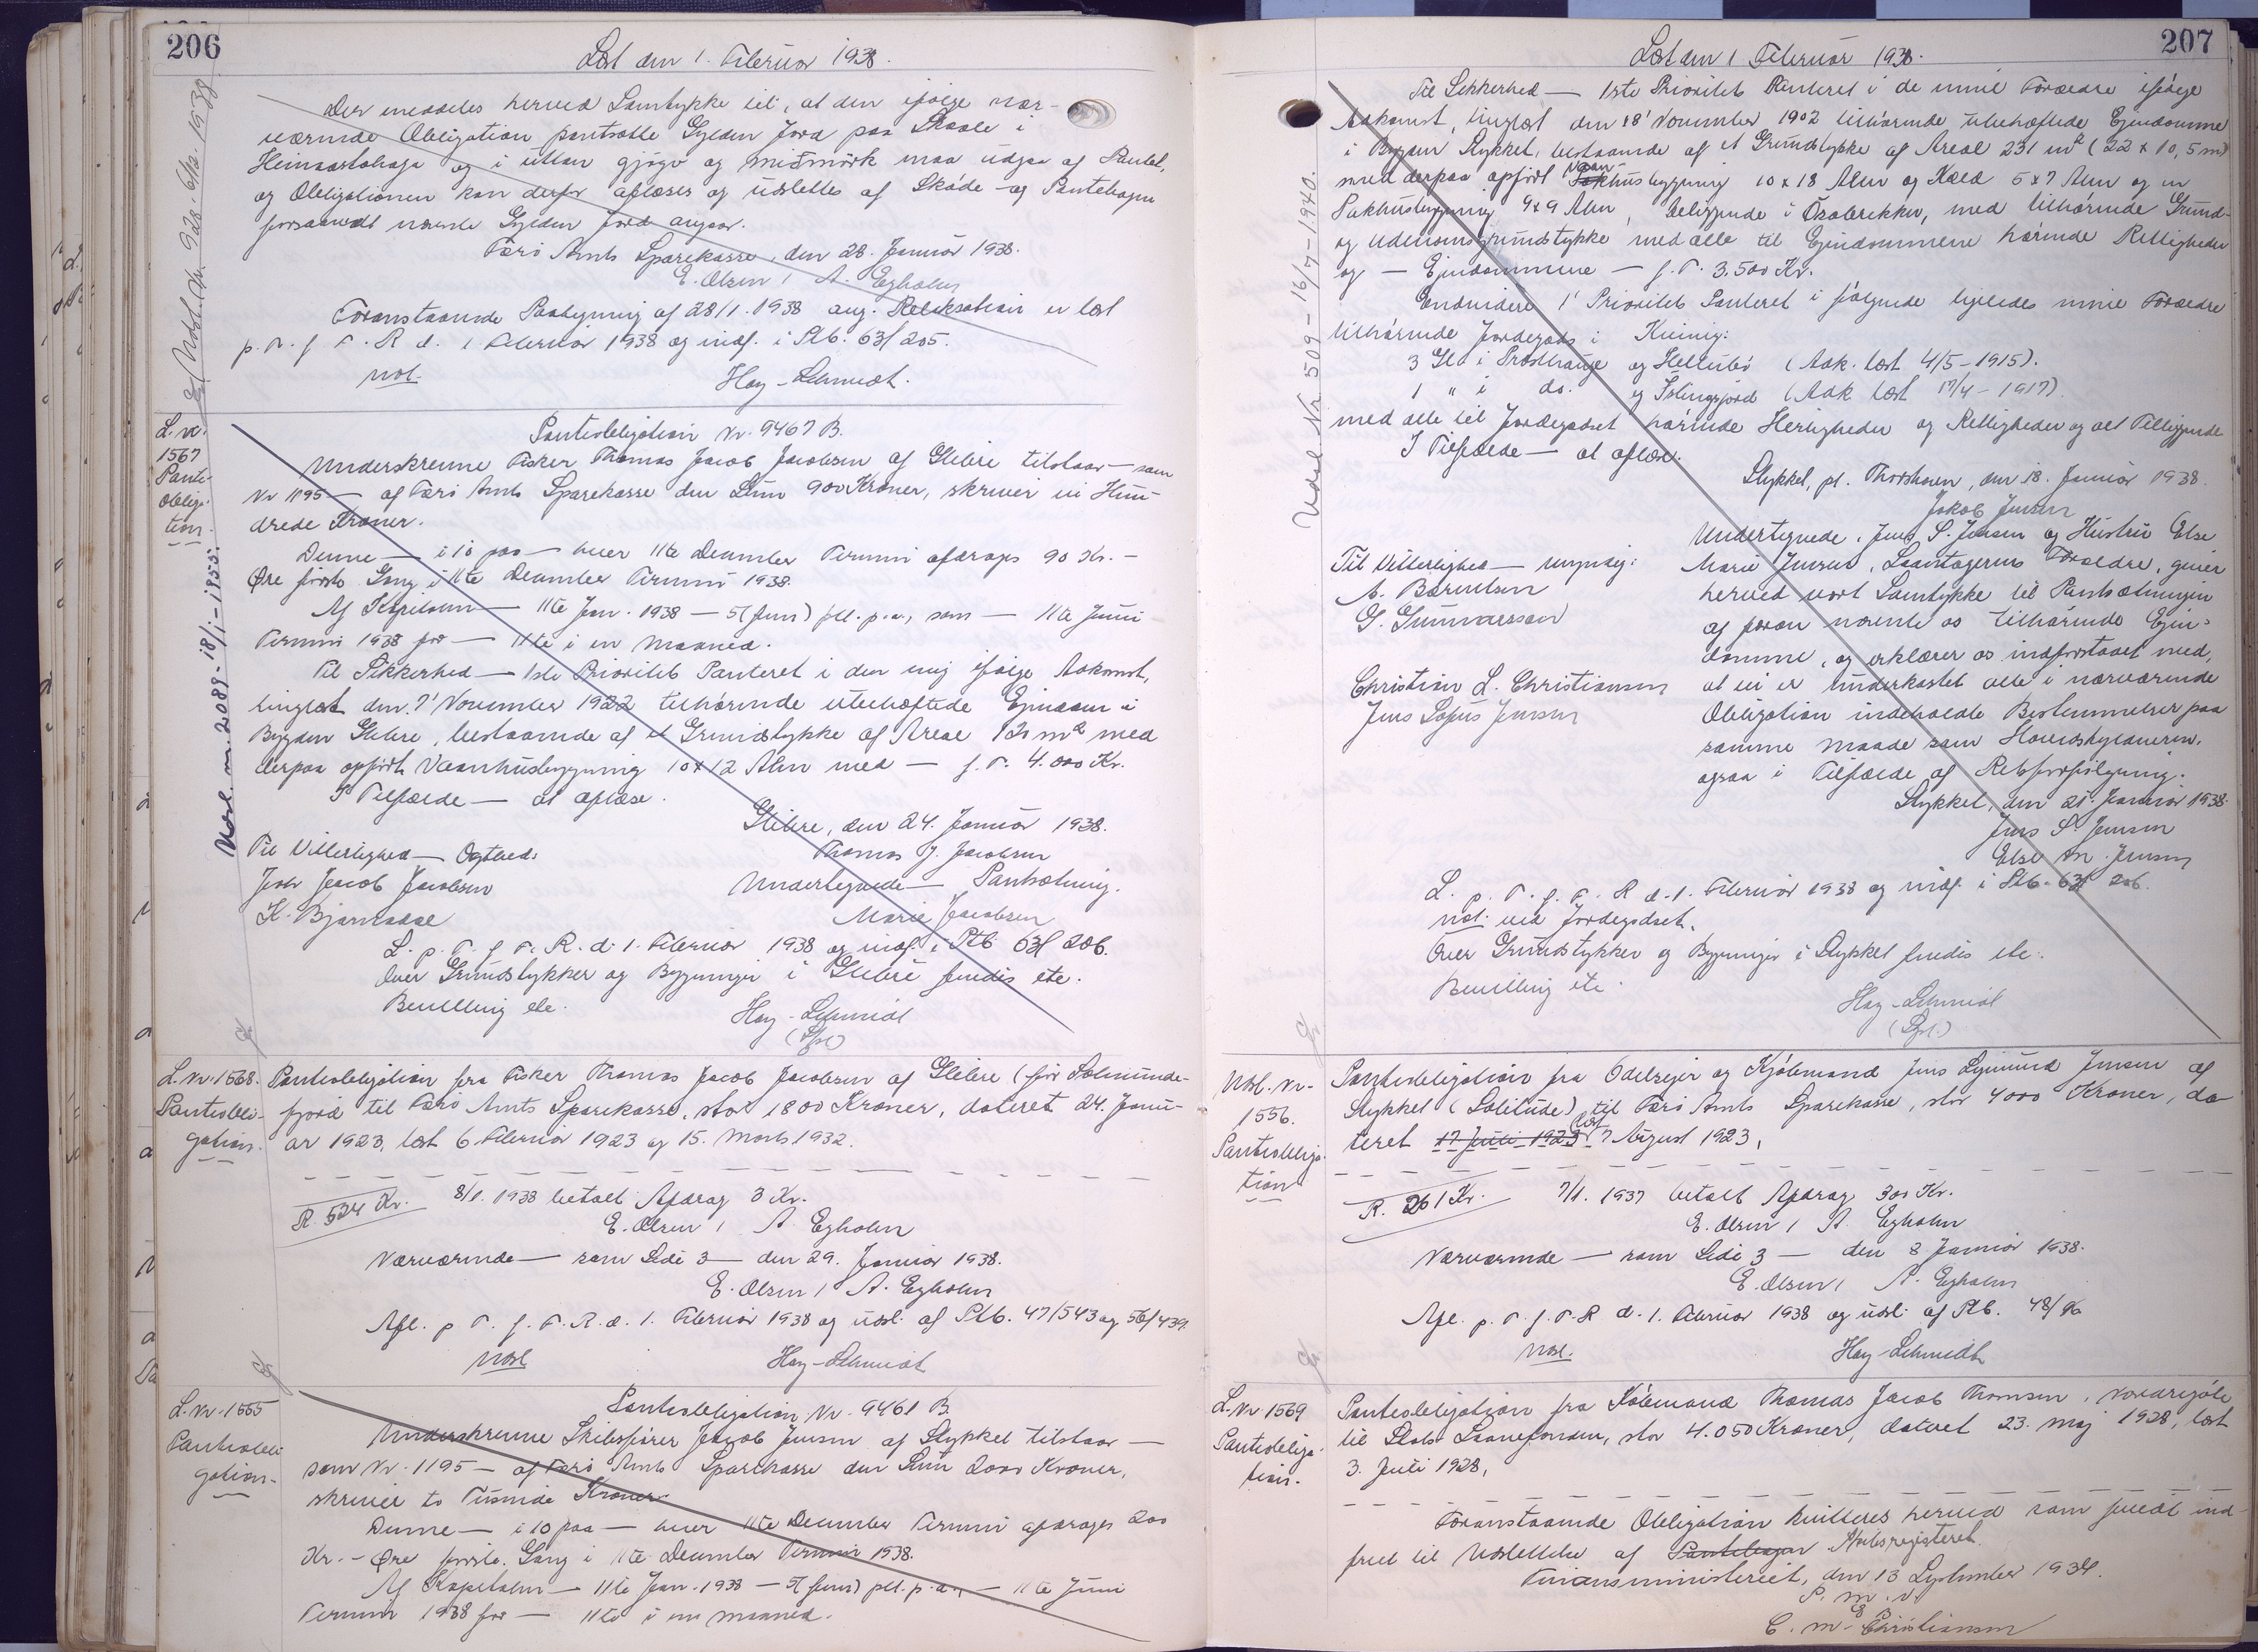 206
Læst den 1. Februar 1938.
Der meddeles herved Samtykke til, at den ifølge nær-
værende Obligation pantsatte Gylden Jord paa Skaale i
Heimastahaga og i uttan gjógv og miðmørk maa udgaa af Pantet,
og Obligationen kan derfor aflæses og udslettes af Skøde- og Pantebogen
forsaavidt nævnte Gylden Jord angaar.
Færø Amts Sparekasse, den 28. Januar 1938.
E. Olsen / A. Egholm
Foranstaaende Paategning af 28/1. 1938 ang. Relaksation er læst
p. T. f. F. R. d. 1 Februar 1938 og indf. i Ptb. 63/205.
not. Hay-Schmidt.
L. Nr.
1567
Pante-
obliga-
tion.
Udsl. nr. 2089 - 18/1. - 1955.
Pantobligation Nr. 9467 B.
Underskrevne Fisker Thomas Jacob Jacobsen af Glibre tilstaar — som
Nr 1195 — af Færø Amts Sparekasse den Sum 900 Kroner, skriver ni Hun-
drede Kroner.
Denne — i 10 paa — hver 11te December Termin afdrages 90 Kr. -
Øre første Gang i 11te December Termin 1938.
Af Kapitalen — 11te Jan. 1938 — 5 (fem) pct. p. a., som — 11te Juni
Termin 1938 for — 11te i en Maaned.
Til Sikkerhed — 1ste Prioritets Panteret i den mig ifølge Adkomst,
tinglæst den 7' November 1922 tilhørende ubehæftede Ejendom i
Bygden Glibre, bestaaende af et Grundstykke af Areal 120 m² med
derpaa opført Vaanhusbygning 10 x 12 Alen med — f. T. 4.000 Kr.
I Tilfælde — at aflæse.
Glibre, den 24. Januar 1938.
Til Vitterlighed — Thomas J. Jacobsen
Joh Jacob Jacobsen Undertegnede — Pantsætning.
K. Bjarnadal Marie Jacobsen
L. p. T. f. F. R. d. 1. Februar 1938 og indf. i Ptb. 63/206.
Over Grundstykker og Bygninger i Glibre findes ete.
Bevilling ete.
Hay-Schmidt
L. Nr. 1568.
Pantobli-
gation.
Pantobligation fra Fisker Thomas Jacob Jacobsen af Glibre (før Solmunde-
fjord til Færø Amts Sparekasse, stor 1800 Kroner, dateret 24. Janu-
ar 1923, læst 6. Februar 1923 og 15. Marts 1932.
R. 534 Kr. 8/1. 1938 betalt Afdrag 3 Kr.
E. Olsen / A. Egholm
Nærværende — som Side 3 — den 29. Januar 1938.
E. Olsen / A. Egholm
Afl. p T. f. F. R. d. 1. Februar 1938 og udsl. af Ptb. 47/543 og 56/439.
Udsl Hay-Schmidt
L. Nr. 1555
Pantobli-
gation.
Pantobligation Nr. 9461 B.
Underskrevne Skibsfører Jacob Jensen af Stykket tilstaar —
som Nr. 1195 — af Færø Amts Sparekasse den Sum 2000 Kroner,
skriver to Tusinde Kroner.
Denne — i 10 paa — hver 11te December Termin afdrages 200
Kr. - Øre første Gang i 11te December Termin 1938.
Af Kapitalen — 11te Jan. 1938 — 5 (fem) pct. p. a., — 11te Juni
Termin 1938 for — 11te i en Maaned.
207
Læst den 1 Februar 1938.
Udsl. Nr. 509 - 16/7 - 1940.
Til Sikkerhed — 1ste Prioritets Panteret i de mine Forældre ifølge
Adkomst, tinglæst den 18' November 1902 tilhørende ubehæftede Ejendomme
i Bygden Stykket, bestaaende af et Grundstykke af Areal 231 m² (22 x 10,5 m)
med derpaa opført Vaanhusbygning 10 x 18 Alen og Kæld 5 x 7 Alen og en
Pakhusbygning 9 x 9 Alen, beliggende i Ósabrekku, med tilhørende Grund-
og Udenomsgrundstykke med alle til Ejendommene hørende Rettigheder
og — Ejendommene — f. T. 3.500 Kr.
Endvidere 1' Prioritets Panteret i følgende ligeledes mine Forældre
tilhørende Jordegods i Kvivig:
3 Gl i Prosthauge og Hellubø (Adk. læst 4/5 - 1915).
1 " i do. og Islingsjord (Adk læst 17/4 - 1917)
med alle til Jordegodset hørende Herligheder og Rettigheder og alt Tilliggende
I Tilfælde — at aflæse.
Stykket, pt. Thorshavn, den 18. Januar 1938.
Jakob Jensen
Til Vitterlighed — Underskrift:
A. Bærentsen
G. Gunnarsson
Christian L. Christiansen
Jens Sofus Jensen
Undertegnede, Jens S. Jensen og Hustru Else
Marie Jensen, Laantagerens Forældre, giver
herved vort Samtykke til Pantsætningen
af foran nævnte os tilhørende Ejen-
domme, og erklærer os indforstaaet med,
at vi er underkastet alle i nærværende
Obligation indeholdte Bestemmelser paa
samme Maade som Hovedskyldneren,
ogsaa i Tilfælde af Retsforfølgning.
Stykket, den 21. Januar 1938.
Jens S. Jensen
Else M. Jensen
L. p. T. f. F. R d. 1. Februar 1938 og indf. i Ptb. 63/206.
not. ved Jordegodset.
Over Grundstykker og Bygninger i Stykket findes ete.
Bevilling ete.
Hay-Schmidt
Udsl. Nr.
1556.
Pantobliga-
tion
Pantobligation fra Odelsejer og Kjøbmand Jens Sigmund Jensen af
Stykket (Solitude) til Færø Amts Sparekasse, stor 4000 Kroner, da-
teret 17 Juli 1923 læst 7 August 1923,
R. 261 Kr. 7/1. 1937 betalt Afdrag 300 Kr.
E. Olsen / A. Egholm
Nærværende — som Side 3 — den 8 Januar 1938.
E. Olsen / A. Egholm
Afl. p. T. f. F. R d. 1. Februar 1938 og udsl. af Ptb. 48/96
Udsl. Hay-Schmidt
L. Nr. 1569
Pantobliga-
tion.
Pantobligation fra Købmand Thomas Jacob Thomsen, Nordragøte
til Stats Laanefonden, stor 4.050 Kroner, dateret 23. Maj 1928, læst
3. Juli 1928,
Foranstaaende Obligation kvitteres herved som fuldt ind-
friet til Udslettelse af Pantebogen Skibsregisteret.
Finansministeriet, den 13 September 1934.
P. M. V.
C. M. Christiansen